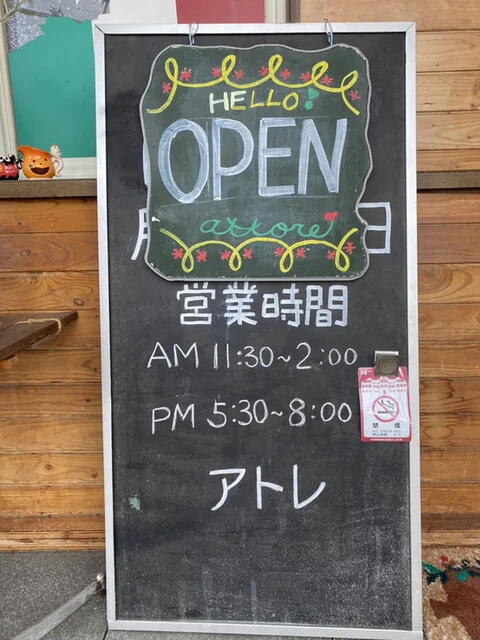 HELLO!
OPEN
attore
日
営業時間
AM 11:30~2:00
PM 5:30~8:00
禁煙
アトレ